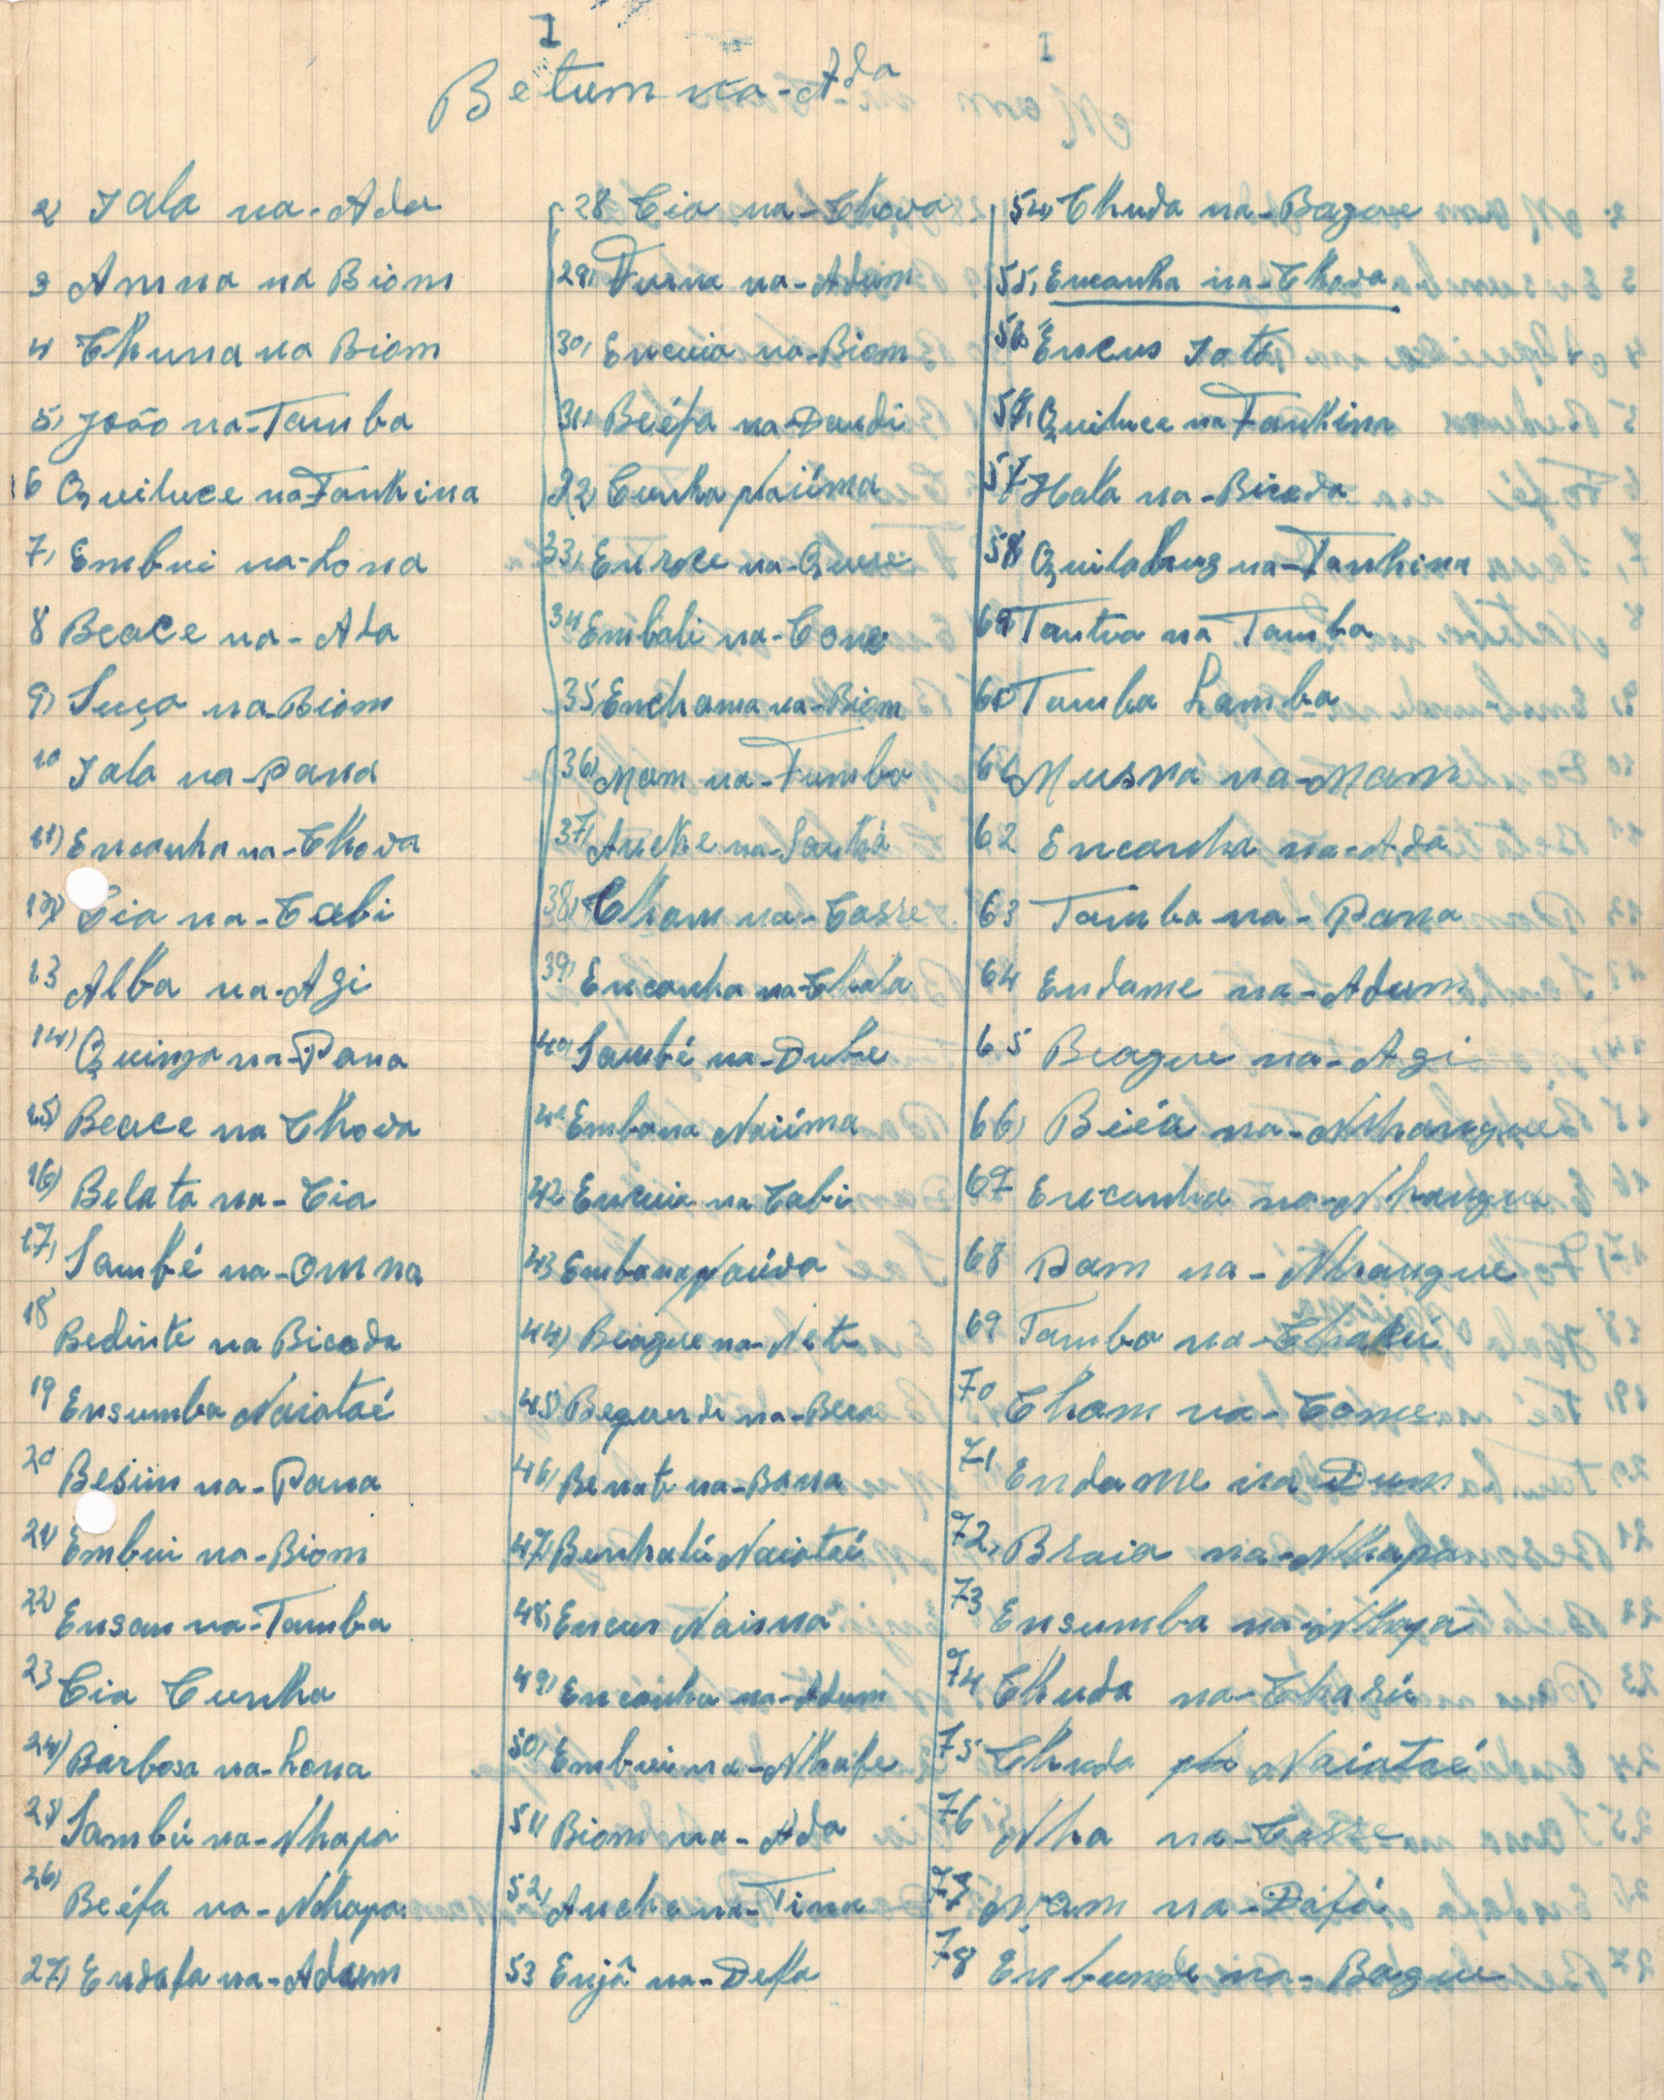 I I
Betum na-Ada
2 Iala na-Ada
3 Amna na Biom
4 Thuna na Biom
5, João na-Tamba
6 Quiluce na Tankina
7, Embui na-Lona
8 Beace na-Ada
9, Suça na-Biom
10 Iala na-Pana
11) Encanha na-Thoda
12) Cia na-Cabi
13 Alba na-Agi
14) Quinza na-Pana
15) Beace na Thoda
16) Belata na-Cia
17, Sambé na-Omna
18 Bedinte na Bicoda
19 Ensumba Naiataé
20 Besim na-Pana
21) Embui na-Biom
22) Ensan na-Tamba
23 Cia Cunha
24) Barbosa na-Lona
25) Sambú na-Nhapa
26) Beéfa na-Nhapa
27) Endafa na-Adum
28 Cia na-Thoda
29, na-Adum
30, Encuia na-Biom
31) Beéfa na-Dandi
32) Cunha Naiíma
33, na-Quese
34 Embali na-Come
35 Enchama na-Biom
36) Mam na-Tumba
37) na-Santá
38) Cham na-Casse
39) Encanha na-Thala
40 Sambé na-Dube
41 Embana Naiíma
42 Encuia na Cabi
43 Embana Naiída
44) Biague na-Nete
45) Bequende na-Beca
46) Benate na-Bana
47) Benhalú Naiataé
48, Encus Naima
49) Encanha na-Adum
50) Embui na-Nhafe
51) Biom na-Ada
52, Ancha na-Tina
53 Enjã na-Defa
54, Chuda na-Bague
55, Encanha na-Thoda
56 Encus Iotá
57, Quiluce na Tankina
57 Hala na-Bicoda
58 na-Tankina
69 Tantva na Tamba
60 Tamba Lamba
61 Musna na-Mam
62 Encanha na-Ada
63 Tamba na-Pana
64 Endame na-Adum
65 Biague na-Agi
66) Biéa na-Nhangue
67 Encanha na-Nhangue
68 Dam na-Nhangue
69 Tambo na-
70 Cham na-Come
71 Endame na Dum
72, Braia na-Nhapa
73 Ensumba na-Nhapa
74 Chuda na-Thasú
75 Chuda Naiataé
76 Nha na-Casse
77 Nçam na-Difá
78 Enbunde na-Bague